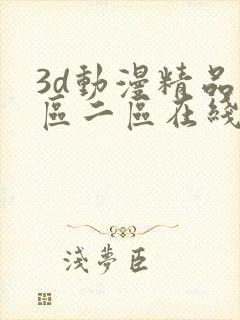 3d動漫精品
區二區在綫
淺夢臣